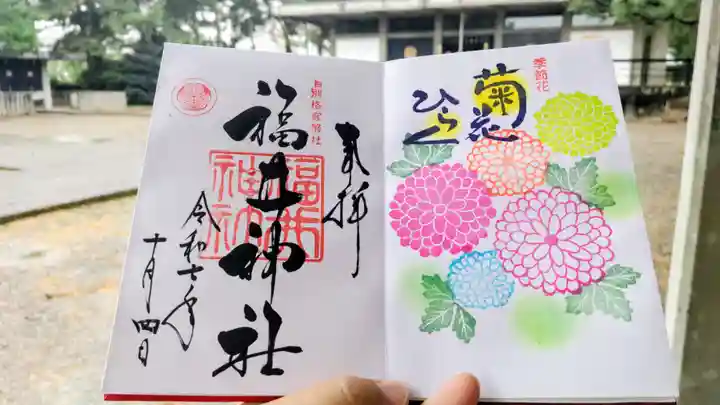 季節花
菊花
ひらく
奉拝
別格官幣社
福井神社
福井
神社
令和七年
十月四日